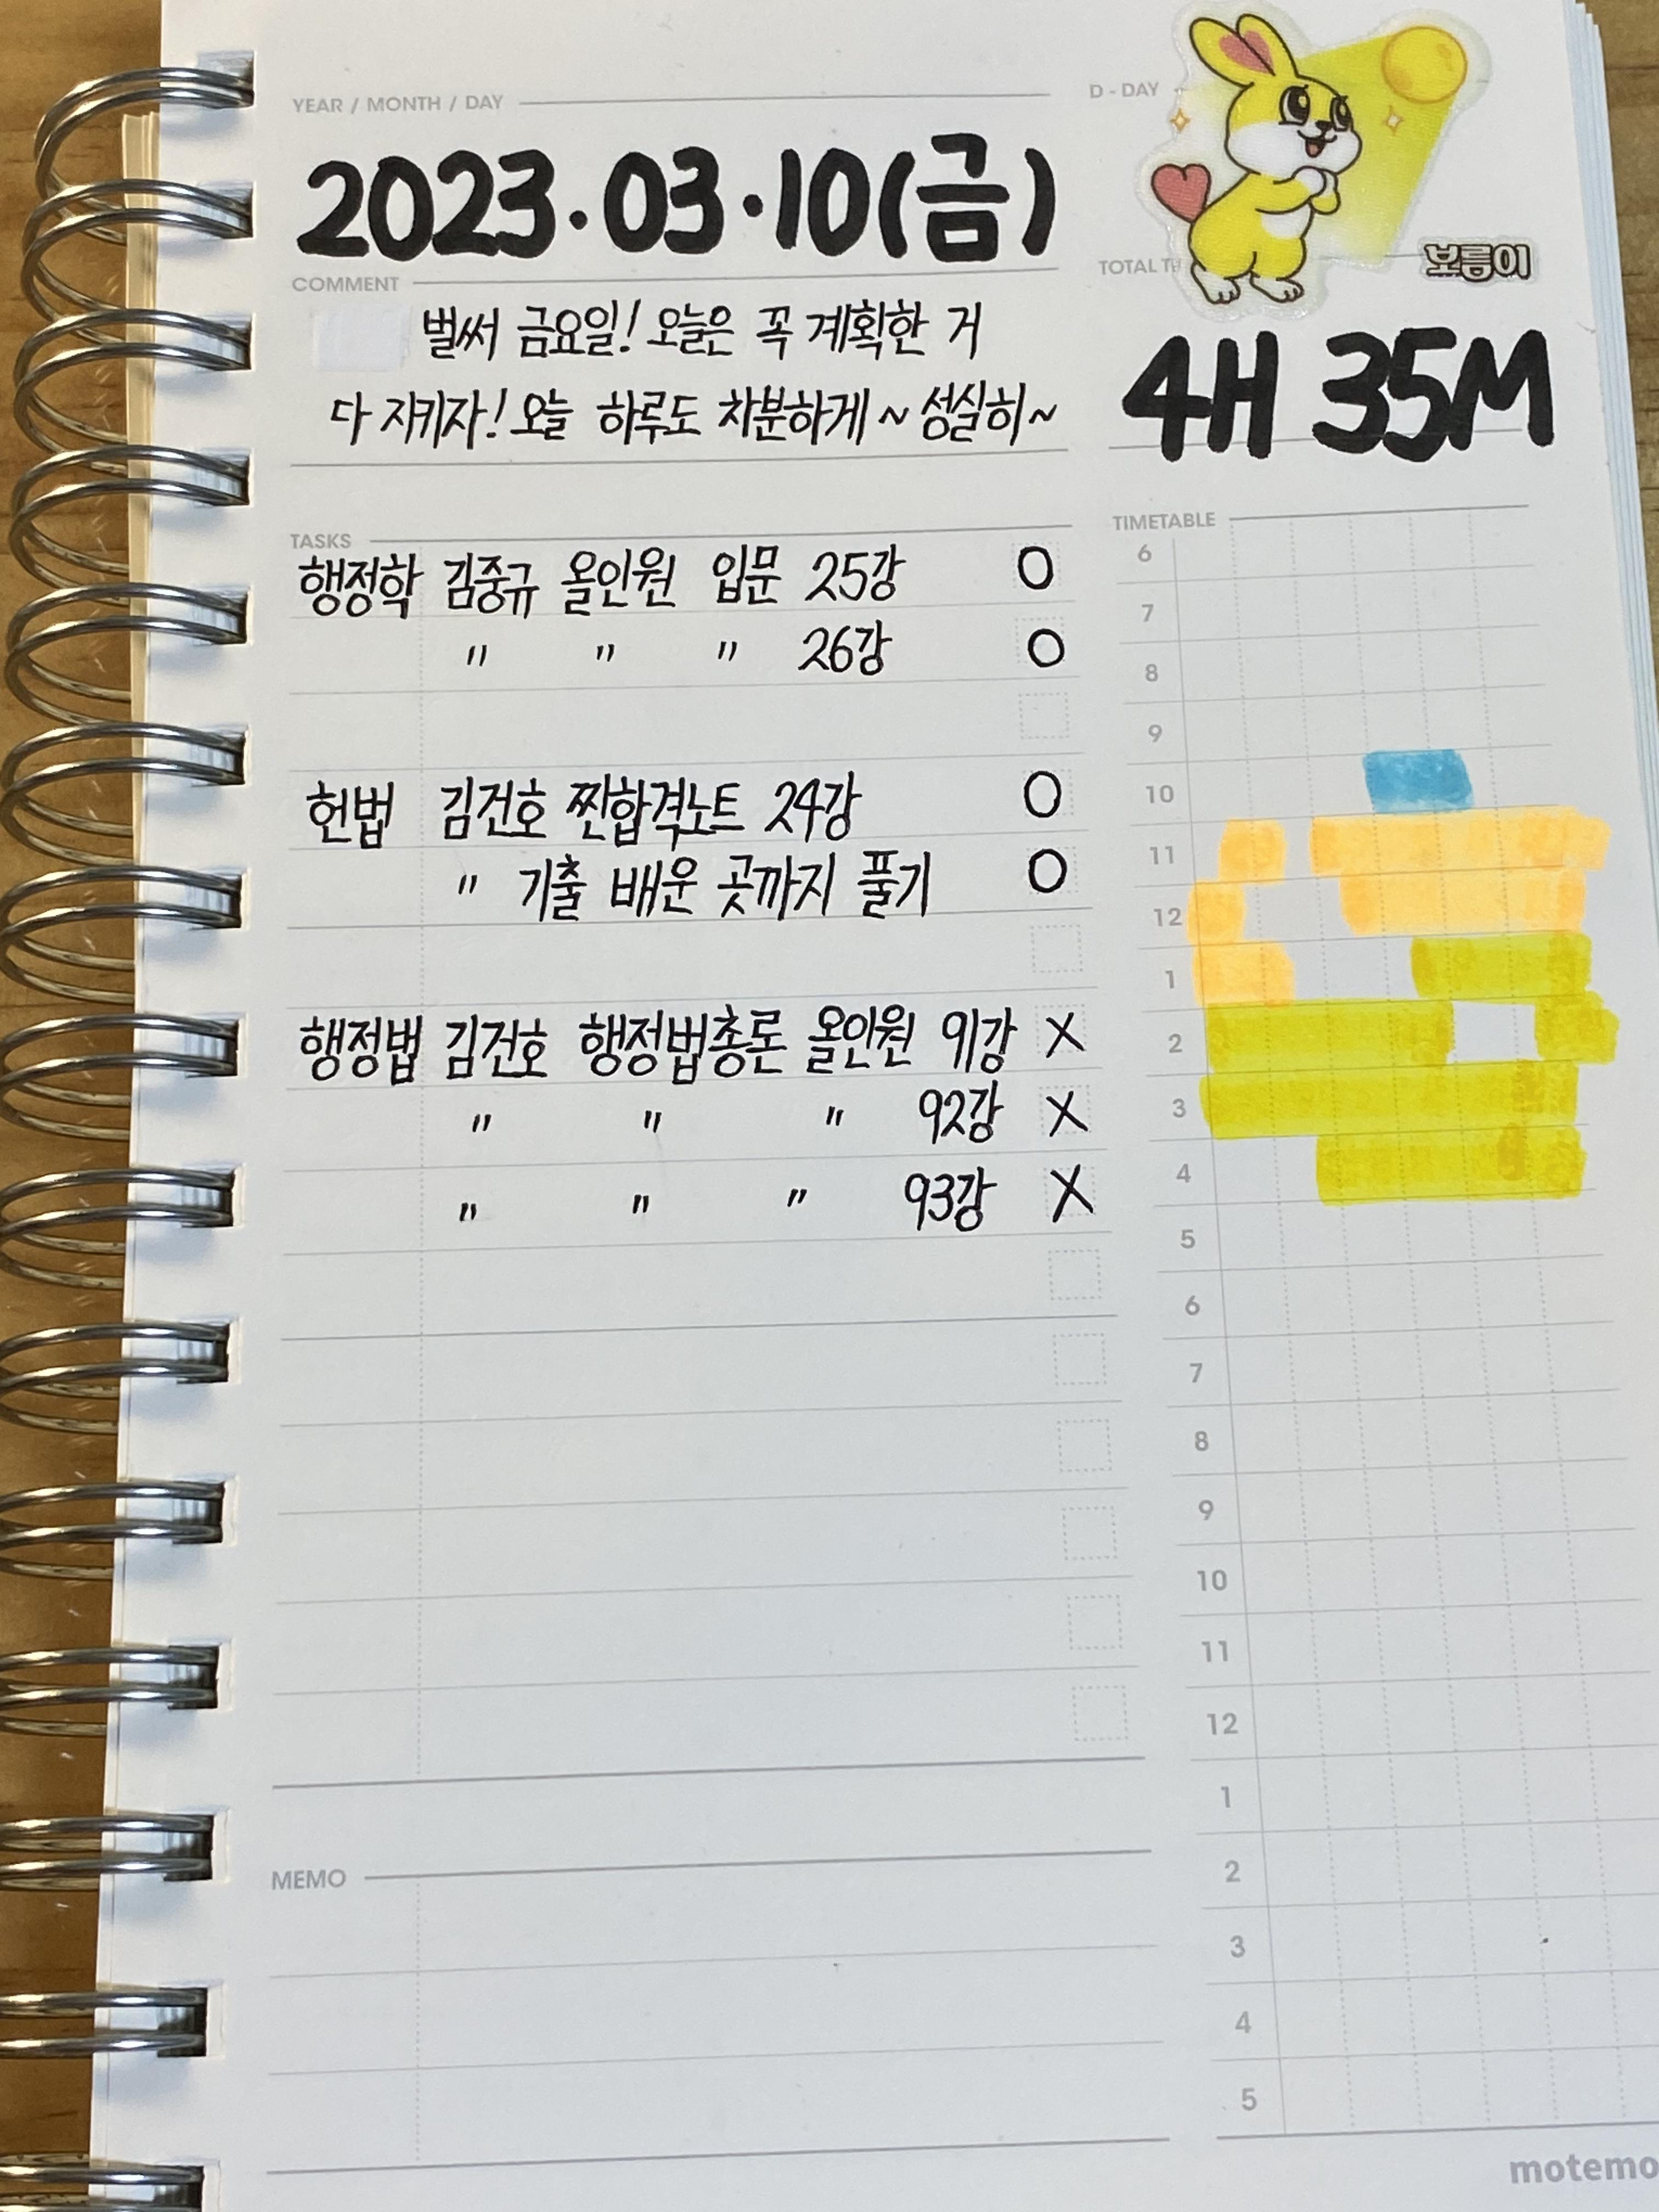 YEAR / MONTH / DAY
2023.03.10(금)
D - DAY
보름이
COMMENT
벌써 금요일! 오늘은 꼭 계획한 거
다 지키자! 오늘 하루도 차분하게~ 성실히~
TOTAL
4H 35M
TASKS
행정학 김중규 올인원 입문 25강 O
" " " 26강 O
헌법 김건호 찐합격노트 24강 O
" 기출 배운 곳까지 풀기 O
행정법 김건호 행정법총론 올인원 91강 X
" " " 92강 X
" " " 93강 X
MEMO
TIMETABLE
6
7
8
9
10
11
12
1
2
3
4
5
6
7
8
9
10
11
12
1
2
3
4
5
motemo